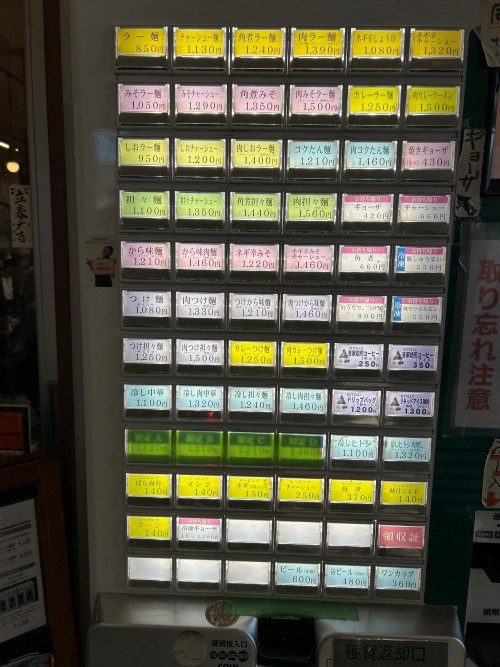 ラー麵
850円
チャーシュー麵
1,130円
角煮ラー麵
1,240円
肉ラー麵
1,390円
ネギ辛しょうゆ
1,080円
ネギ辛
チャーシュー
1,320円
みそラー麵
1,050円
みそチャーシュー
1,290円
角煮みそ
1,350円
肉みそラー麵
1,500円
カレーラー麵
1,250円
肉カレーラーメン
1,500円
しおラー麵
950円
しおチャーシュー
1,200円
肉しおラー麵
1,400円
コクたん麵
1,210円
肉コクたん麵
1,460円
焼きギョーザ
430円
担々麵
1,100円
担々チャーシュー
1,350円
角煮担々麵
1,440円
肉担々麵
1,560円
お持ち帰り
ギョーザ
420円
お持ち帰り
チャーシュー
660円
から味麵
1,210円
から味肉麵
1,460円
ネギ辛みそ
1,220円
ネギ辛みそ
チャーシュー
1,460円
お持ち帰り
角煮
660円
お持ち帰り
冷凍
550円
つけ麵
1,080円
肉つけ麵
1,330円
つけから味麵
1,210円
肉つけから味麵
1,460円
お持ち帰り
おうちで、つけ麵
900円
お持ち帰り
冷凍
550円
つけ担々麵
1,250円
肉つけ担々麵
1,500円
カレーつけ麵
1,250円
肉カレーつけ麵
1,500円
自家焙煎コーヒー
250円
自家焙煎コーヒー
350円
冷し中華
1,100円
冷し肉中華
1,320円
冷し担々麵
1,240円
冷し肉担々麵
1,460円
ドリップバッグ
1200円
1300円
限定A
限定B
限定C
限定D
冷しヒトシ
1,100円
1,320円
ばら肉片
140円
メンマ
140円
ネギ
150円
チャーシュー
250円
角煮
370円
味付け玉子
140円
コーン
140円
お持ち帰り
冷凍ギョーザ
領収証
ビール
600円
缶ビール
480円
ワンカップ
360円
硬貨投入口
COIN
硬貨返却口
取り忘れ注意
立春大吉
ギョーザ